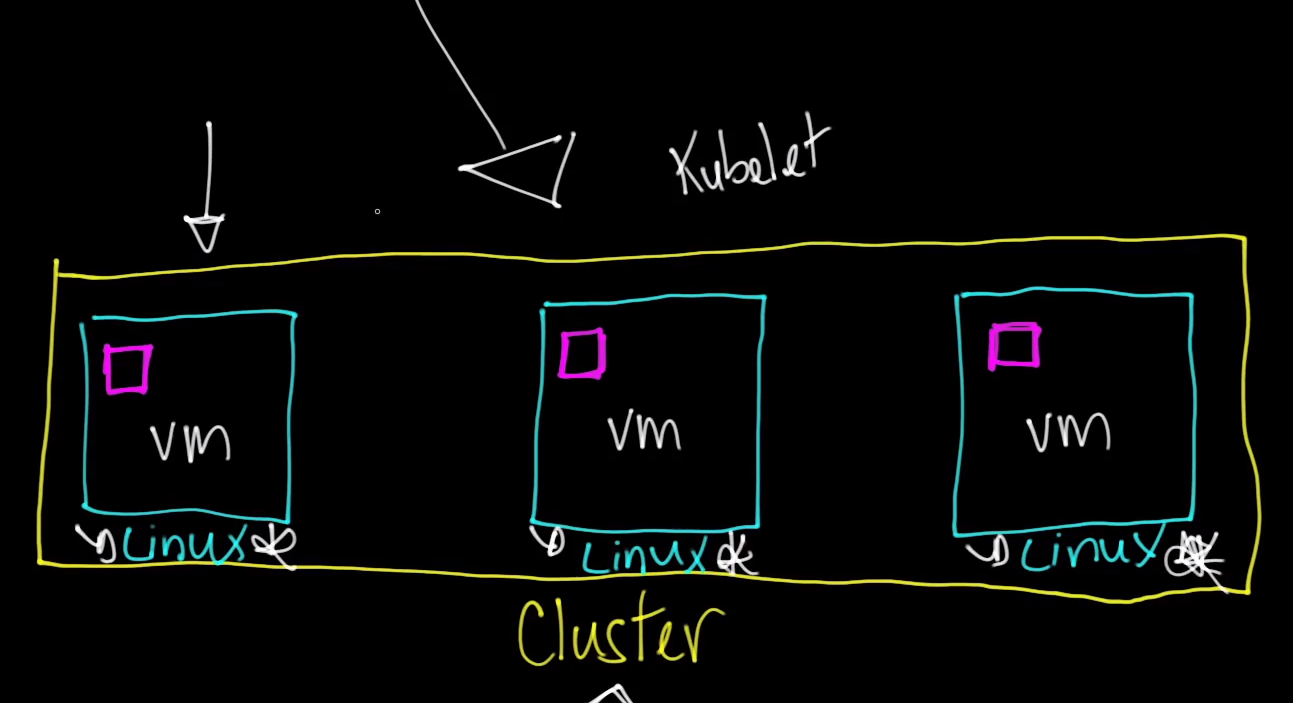 Kubelet
vm vm vm
Linux Linux Linux
Cluster